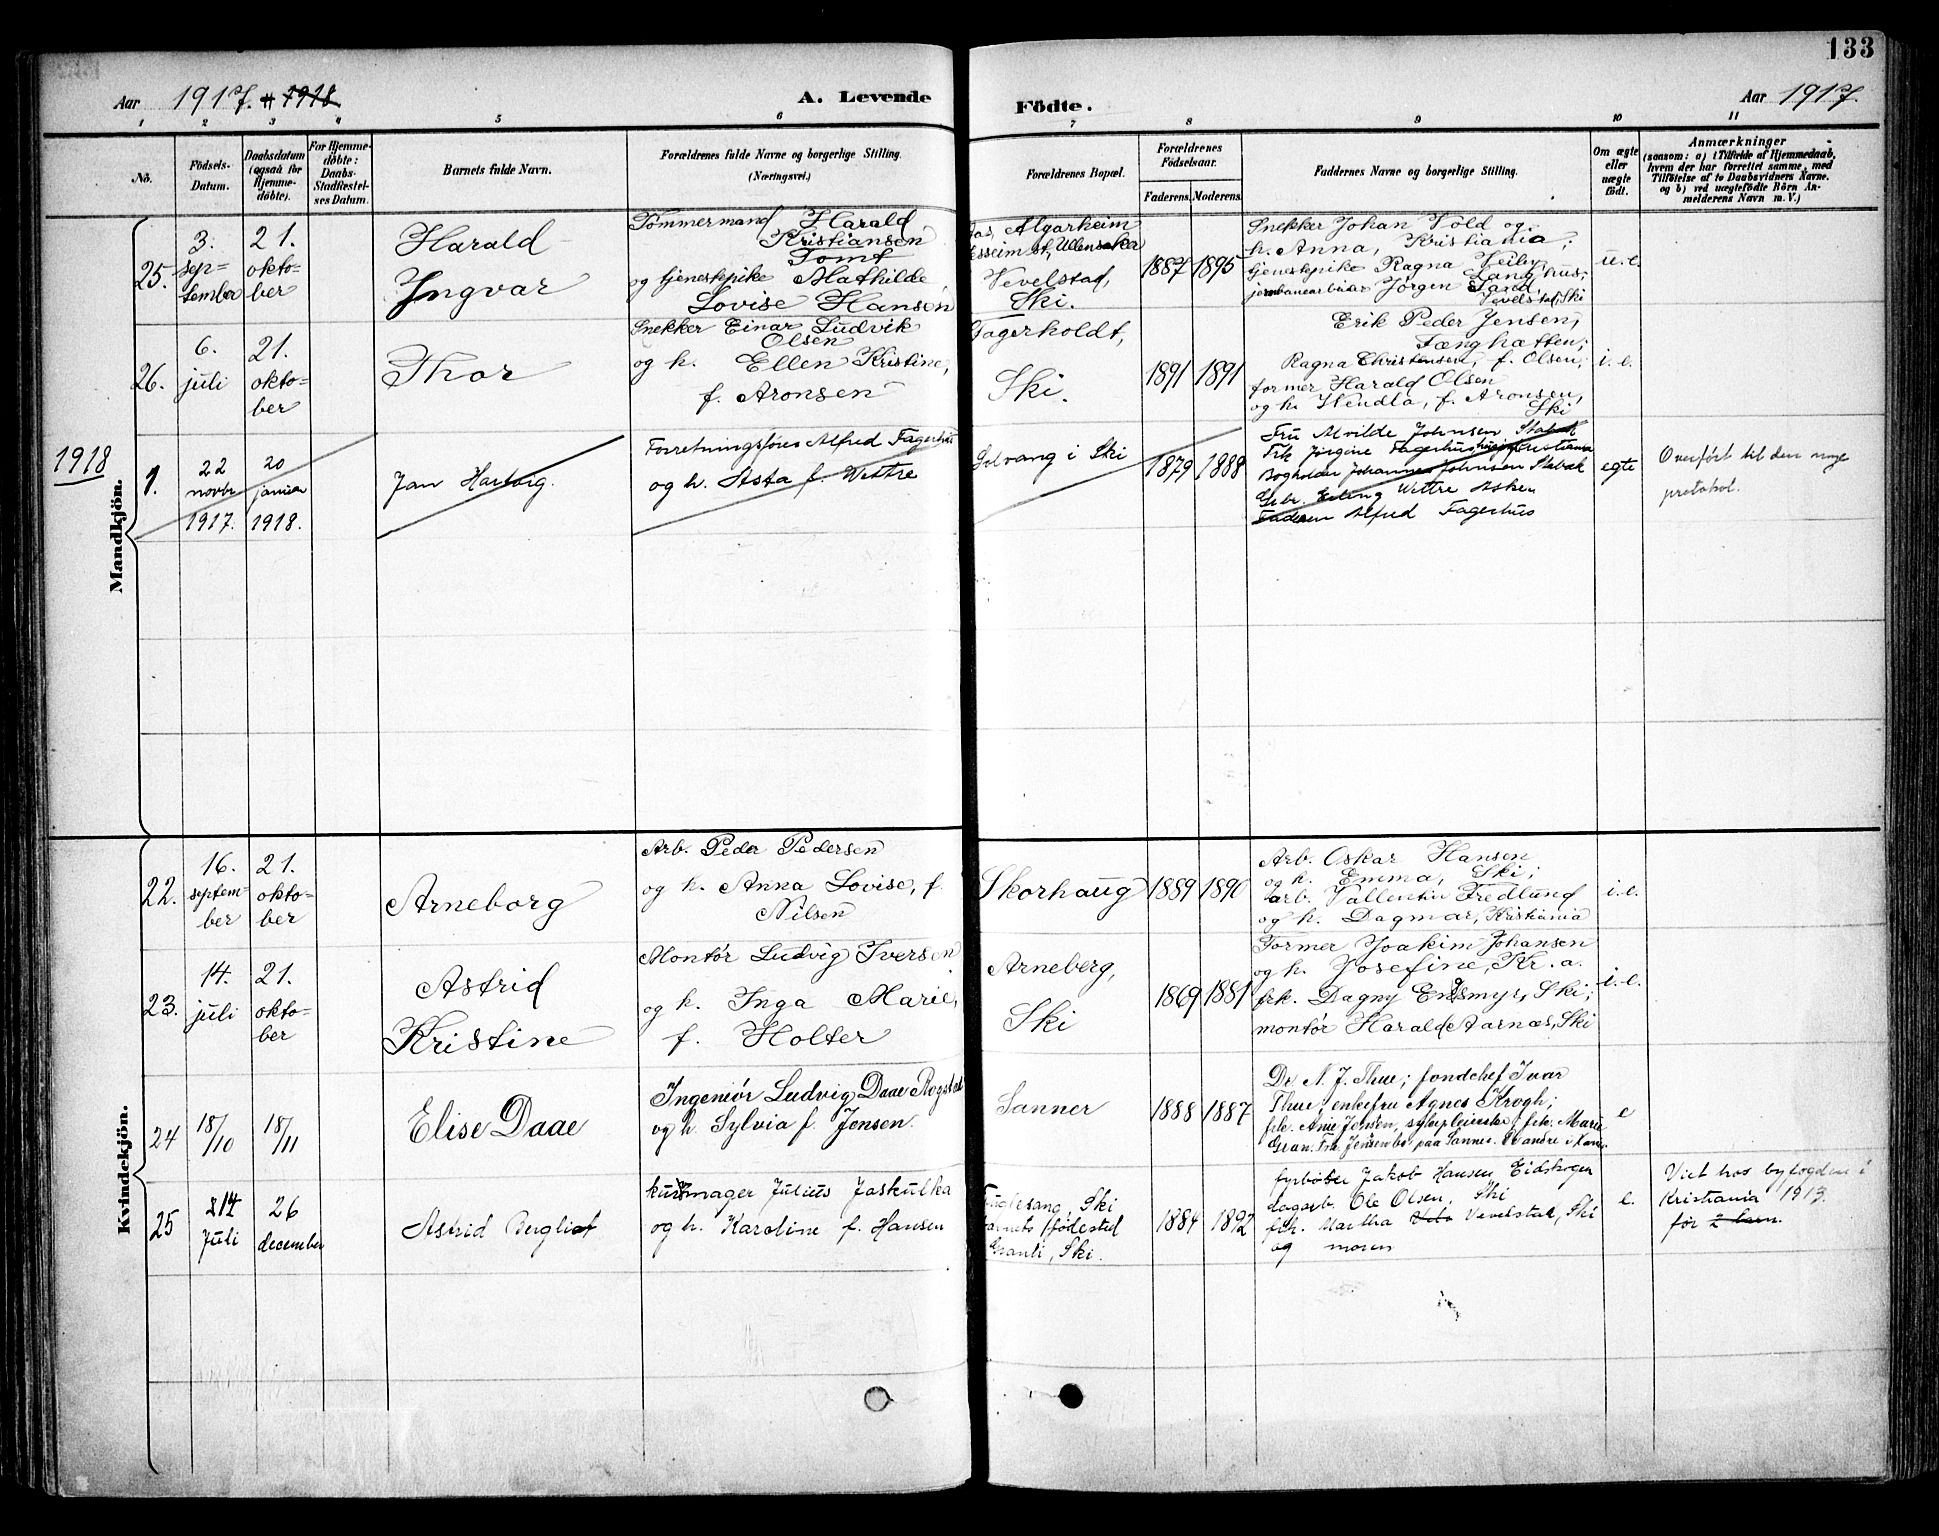 133
Aar 1917. # 1918.
A. Levende
Födte.
Aar 1917.
1 2 3 4 5 6 7 8 9 10 11
No.
Födsels-
Datum.
Daabsdatum
(ogsaa for
Hjemme-
døbte).
For Hjemme-
døbte:
Daabs-
Stadfæstel-
ses Datum.
Barnets fulde Navn.
Forældrenes fulde Navne og borgerlige Stilling.
(Næringsvei.)
Forældrenes Bopæl.
Forældrenes
Födselsaar.
Faderens. Moderens.
Faddernes Navne og borgerlige Stilling.
Om ægte
eller
uægte
født.
Anmærkninger
(saasom: a) i Tilfælde af Hjemmedaab,
hvem der har forrettet samme, med
Tilføielse af to Daabsvidners Navne.
og b) ved uægtefødte Börn An-
melderens Navn m. V.)
Mandkjön.
25.
3.
sep-
tember
21.
okto-
ber
Harald
Yngvar
Tömmermand Harald
Kristiansen
Tomt
og tjenestepike Mathilde
Lovise Hansen
Algarheim
st, Ullensaker
Vevelstad,
Ski.
1887 1895
Snekker Johan Vold og
h. Anna, Kristiania;
tjenestepike Ragna Veiby,
Langhus;
jernbanearbeider Jörgen Sand,
Vevelstad, Ski
u.e.
26.
6.
juli
21.
okto-
ber
Thor
Snekker Einar Ludvik
Olsen
og h. Ellen Kristine,
f. Aronsen
Fagerholdt,
Ski.
1891 1891
Erik Peder Jensen,
Længhatten;
Ragna Christensen, f. Olsen;
former Harald Olsen
og h. Hendla, f. Aronsen,
Ski
i.e.
1918
1.
22
novbr
1917.
20
januar
1918.
Jan Harborg.
Forretningsfører Alfred Fagerhus
og h. Asta f. Wettre
Solvang i Ski
1879 1888
Fru Alvilde Johnsen Stabæk
Frk Jörgine Fagerhus Kristiania
Bogholder Johannes Johnsen Stabæk
Gbr. Erling Wettre Asker
Faderen Alfred Fagerhus
egte
Overført til den nye
protokol.
Kvindekjön.
22.
16.
septem-
ber
21.
okto-
ber
Arneborg
Arb. Peder Pedersen
og h. Anna Lovise, f.
Nilsen
Skorhaug
1889 1890
Arb. Oskar Hansen
og h. Emma, Ski;
arb. Vallentin Fredlund
og h. Dagmar, Kristiania
i.e.
23.
14.
juli
21.
okto-
ber
Astrid
Kristine
Montör Ludvig Iversen
og h. Inga Marie,
f. Holter
Arneberg,
Ski
1869 1881
Former Joakim Johansen
og h. Josefine, Kr.a.
frk. Dagny Engsmyr, Ski;
montör Harald Aarnæs, Ski
i.e.
24
18/10
18/11
Elise Daae
Ingeniör Ludvig Daae Rogstad
og h. Sylvia f. Jensen.
Sanner
1888 1887
Dr. N. J. Thue; fondchef Ivar
Thue; enkefru Agnes Krogh;
frk. Anie Jensen, sykepleierske; frk. Marie
Gran. Frk. Jensen bor paa Sanner. De andre i Kra.
e
25
14
Juli
26
december
Astrid Bergliot
kurvmager Julius Jaskulka
og h. Karoline f. Hansen
Fuglesang, Ski
barnets fødested
Granli, Ski.
1884 1892
fyrbøter Jakob Hansen, Eidskogen
dagarb. Ole Olsen, Ski
frk. Martha Vevelstad, Ski
og moren
e.
Viet hos byfogden i
Kristiania 1913.
før 2 barn.